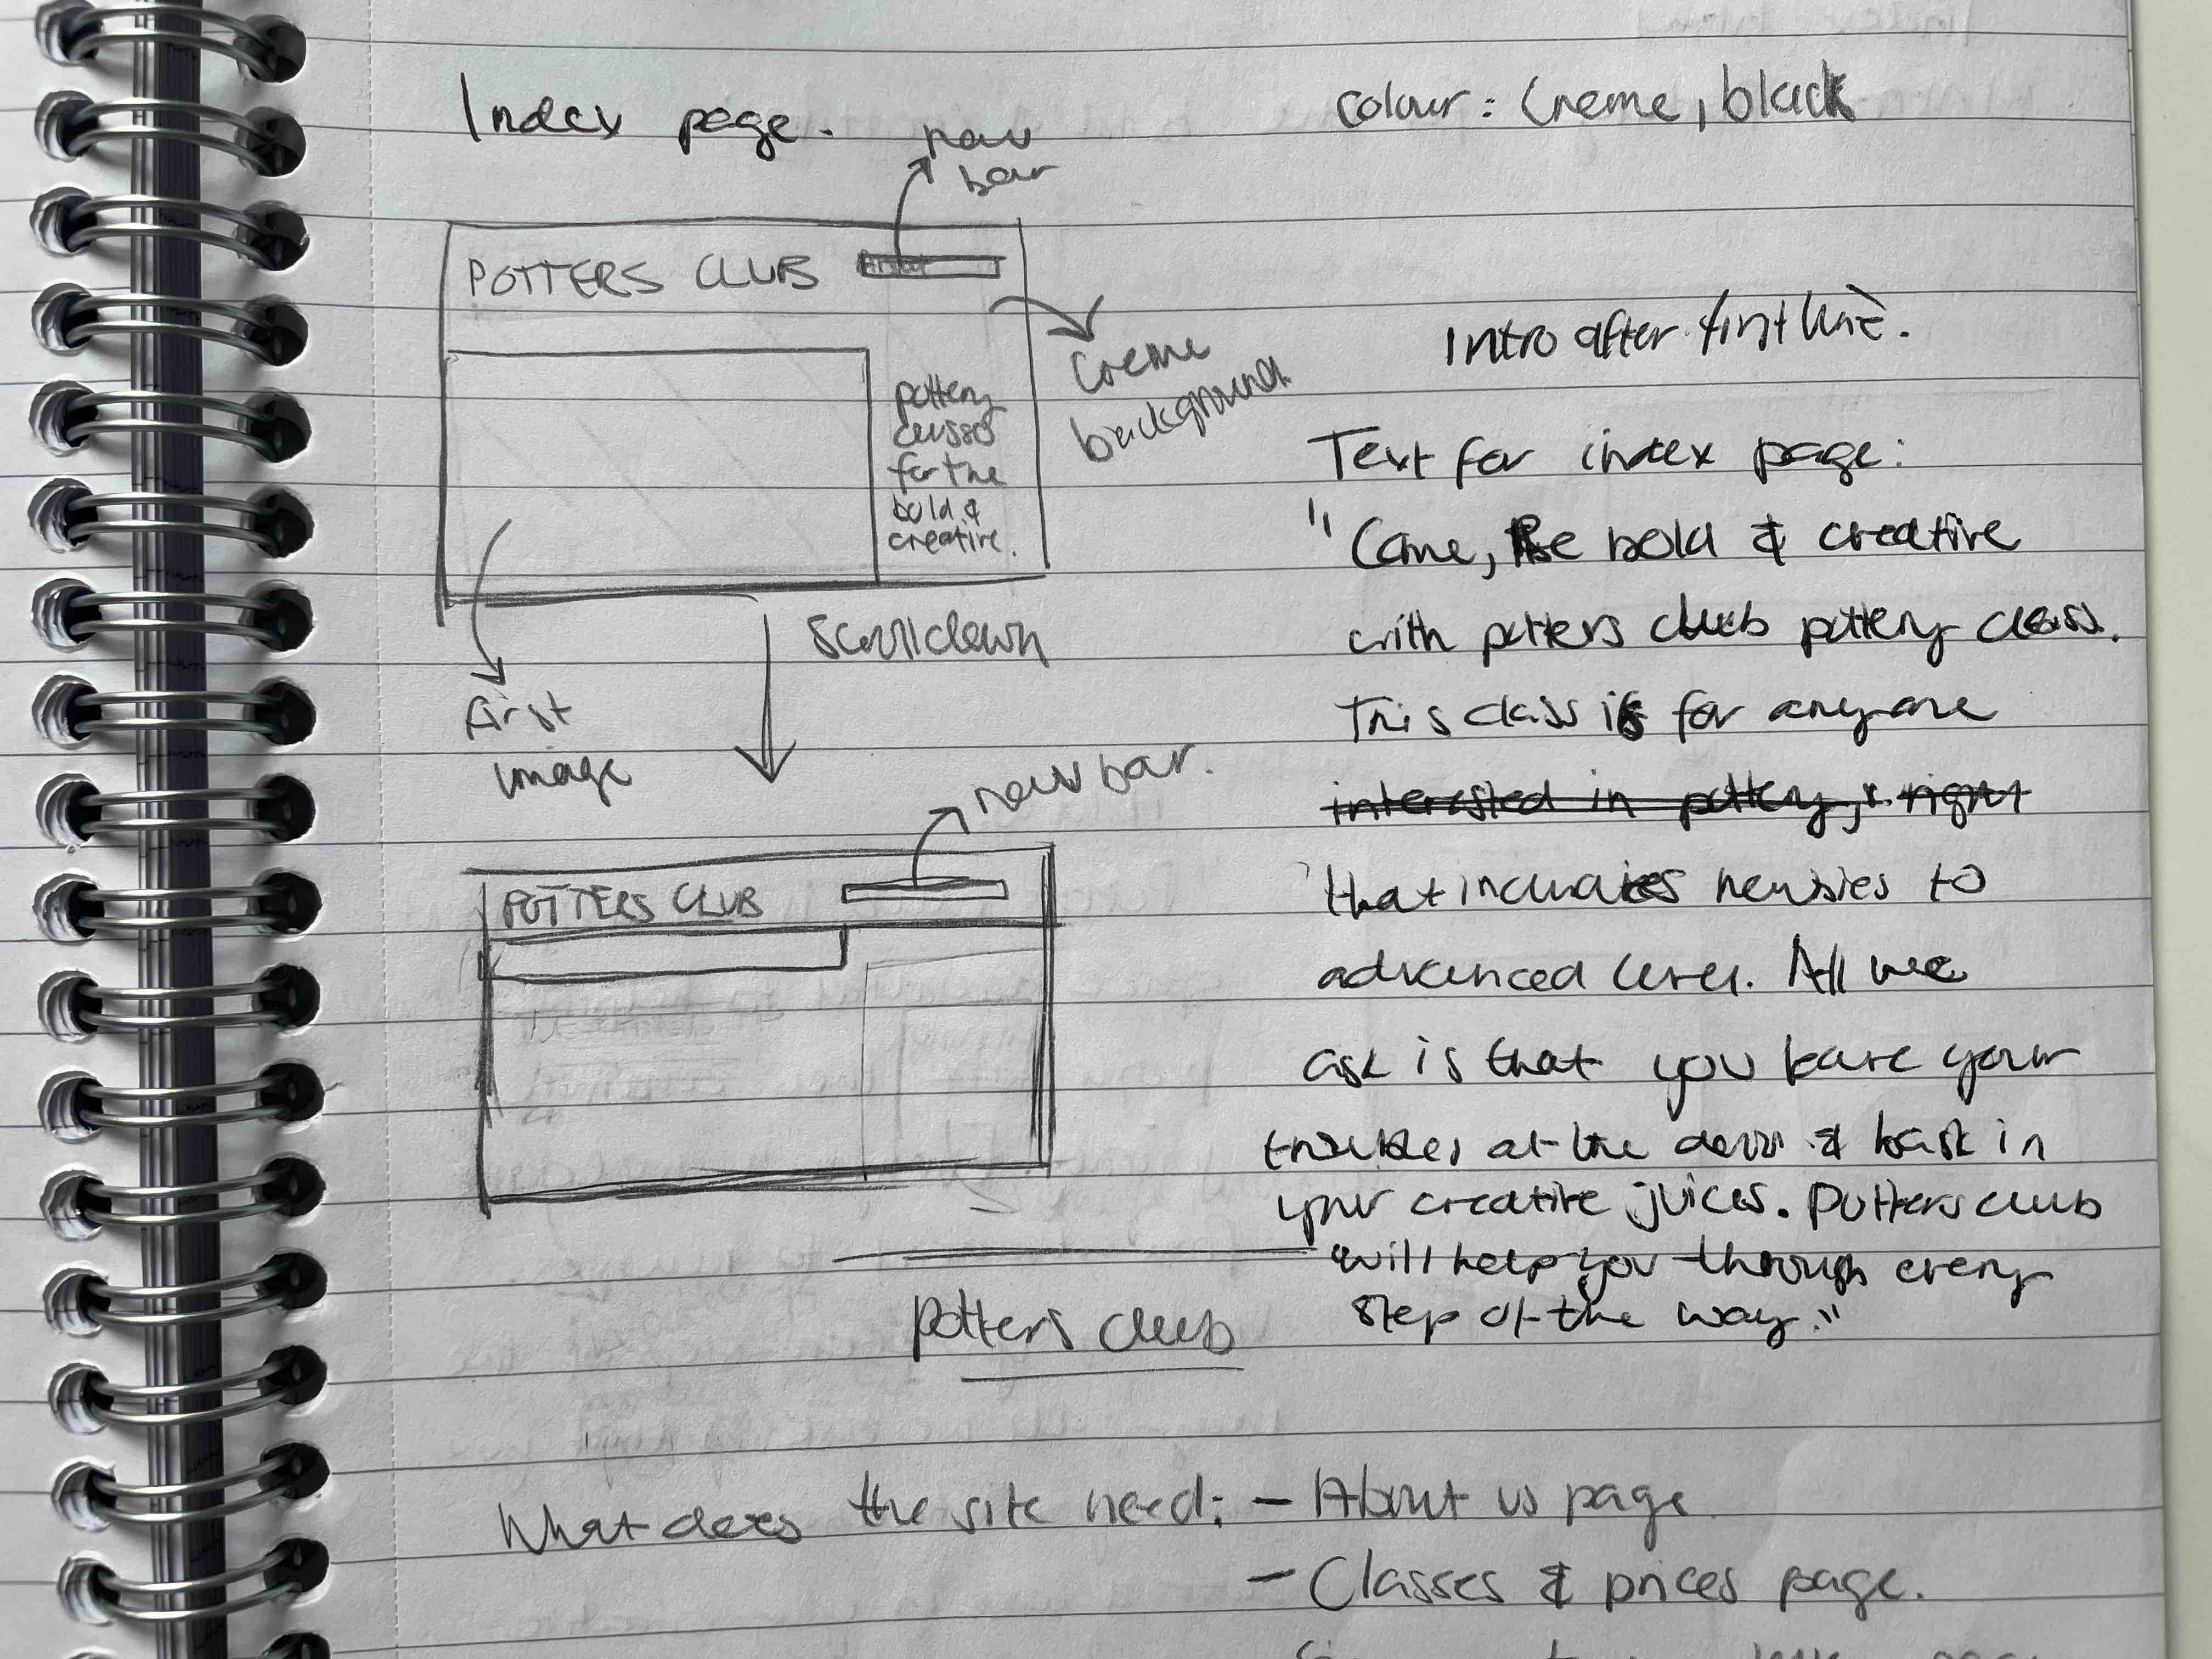 Index page.
colour: Creme, black
nav
bar
POTTERS CLUB
Creme
background
pottery
classes
for the
bold &
creative.
Scroll down
first
image
nav bar.
POTTERS CLUB
Intro after first line.
Text for index page:
"Come, Be bold & creative
with potters club pottery class.
This class is for anyone
interested in pottery, right
that includes newbies to
advanced level. All we
ask is that you leave your
troubles at the door & bask in
your creative juices. Potters club
will help you through every
step of the way."
Potters club
What does the site need: - About us page
- Classes & prices page.